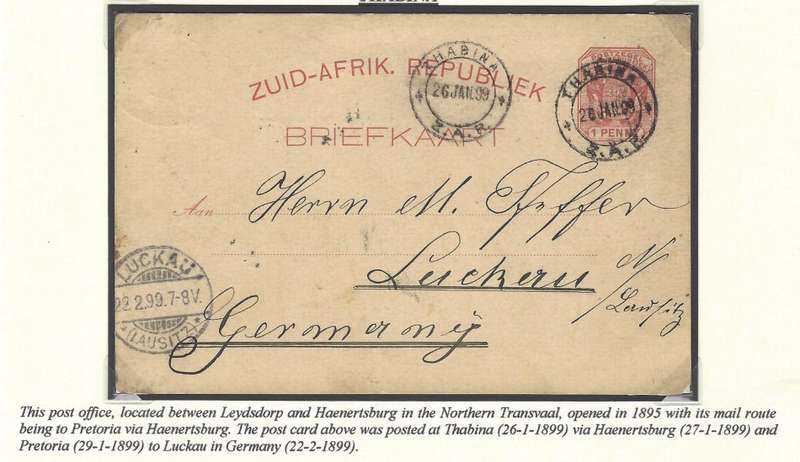 THABINA
ZUID-AFRIK. REPUBLIEK
THABINA
26 JAN.99
Z.A.R.
THABINA
26 JAN.99
Z.A.R.
1 PENNY
BRIEFKAART
Aan
Herrn M. Pfeffer
Luckau N/
Lausitz
Germany
LUCKAU
22.2.99.7-8V.
*(LAUSITZ)*
This post office, located between Leydsdorp and Haenertsburg in the Northern Transvaal, opened in 1895 with its mail route
being to Pretoria via Haenertsburg. The post card above was posted at Thabina (26-1-1899) via Haenertsburg (27-1-1899) and
Pretoria (29-1-1899) to Luckau in Germany (22-2-1899).